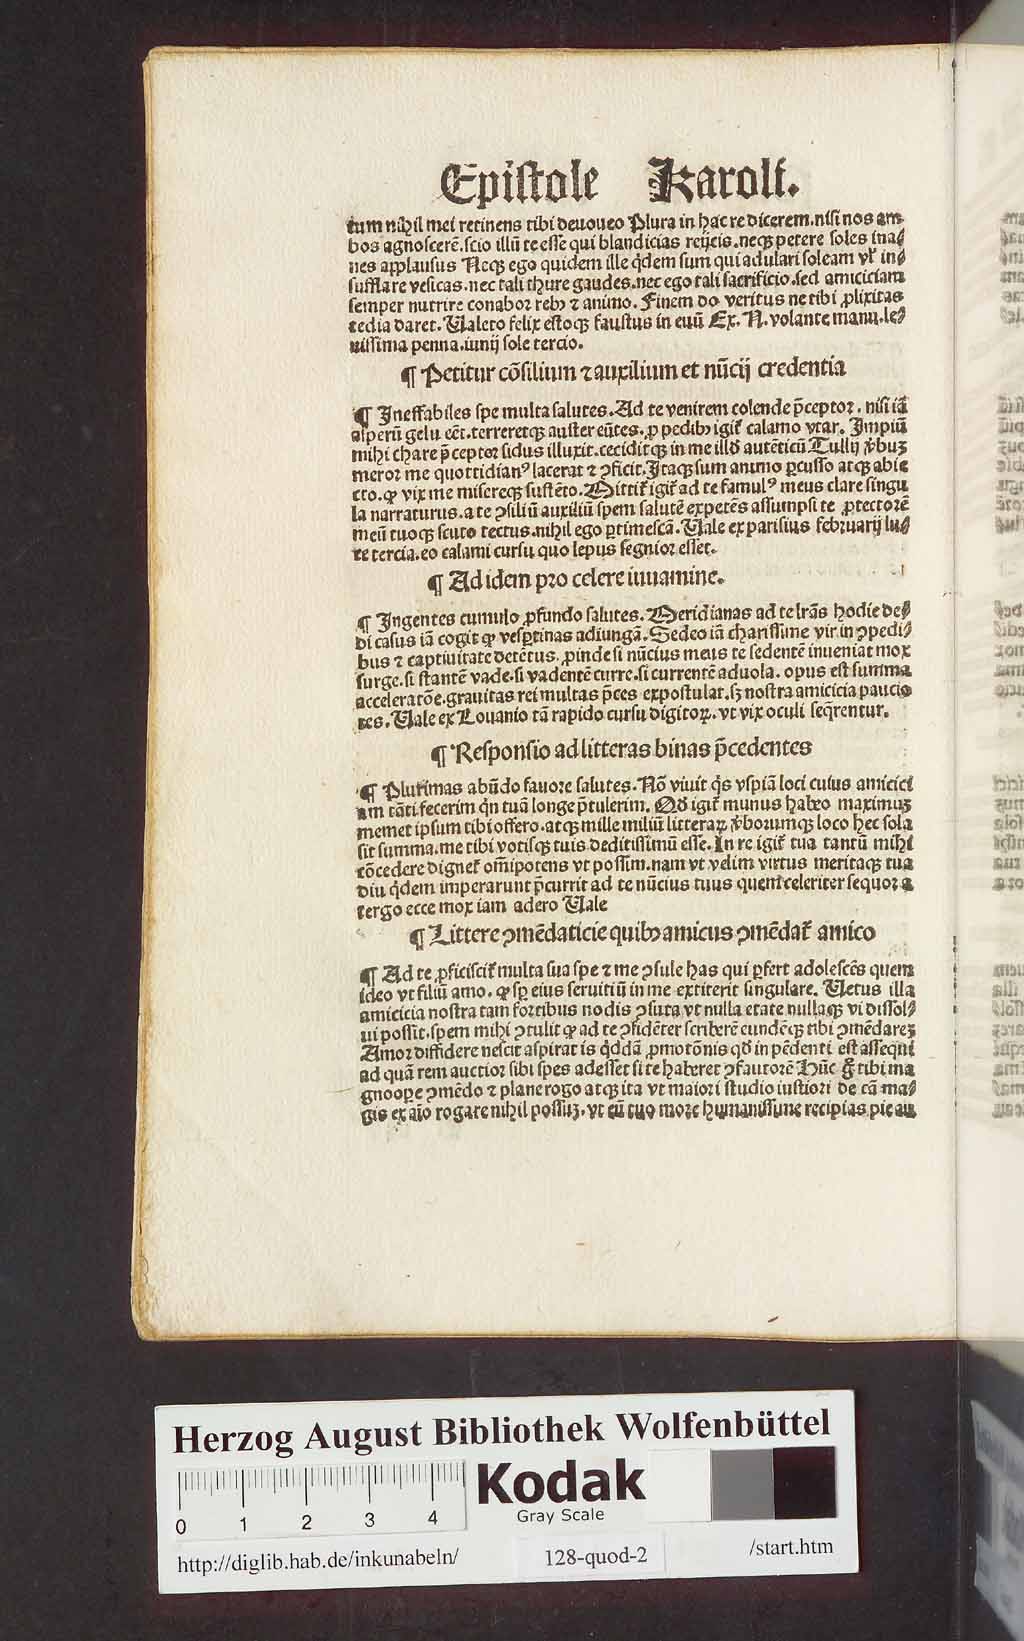 Epistole Karoli.
tum nihil mei retinens tibi deuoueo Plura in hac re dicerem.nisi nos am
bos agnoscerē.scio illū te esse qui blandicias reijcis.neqꝫ petere soles ina⸗
nes applausus Neqꝫ ego quidem ille q̄dem sum qui adulari soleam vl' in⸗
sufflare vesicas.nec tali thure gaudes.nec ego tali sacrificio.sed amiciciam
semper nutrire conabor rebꝰ ⁊ animo. Finem do veritus ne tibi ꝓlixitas
tedia daret. Ualeto felix estoqꝫ faustus in euū Ex. N. volante manu.le⸗
uissima penna.iunij sole tercio.
¶ Petitur cōsilium ⁊ auxilium et nūcij credentia
¶ Ineffabiles spe multa salutes. Ad te venirem colende p̄ceptor. nisi iā
asperū gelu eēt.terreretqꝫ auster eūtes.ꝓ pedibꝰ igit᷑ calamo vtar. Impiū
mihi chare p̄ceptor sidus illuxit.ceciditqꝫ in me illđ autēticū Tullij v̓buꝫ
meror me quottidianꝰ lacerat ⁊ ꝯficit.Itaqꝫ sum animo ꝑcusso atqꝫ abie
cto.ꝙ vix me misereqꝫ sustēto.Mittit᷑ igit᷑ ad te famulꝰ meus clare singu
la narraturus.a te ꝯsiliū auxiliū spem salutē expetēs assumpsi te ꝓtectorē
meū tuoqꝫ scuto tectus.nihil ego ꝑtimescā.Uale ex parisius februarij lu⸗
ce tercia.eo calami cursu quo lepus segnior esset.
¶ Ad idem pro celere iuuamine.
¶ Ingentes cumulo ꝓfundo salutes.Meridianas ad te lr̄as hodie de⸗
di casus iā cogit ꝙ vesꝑtinas adiungā.Sedeo iā charissime vir in ꝯpedi⸗
bus ⁊ captiuitate detētus.ꝓinde si nūcius meus te sedentē inueniat mox
surge.si stantē vade.si vadentē curre.si currentē aduola. opus est summa
acceleratōe.grauitas rei multas p̄ces expostulat.sꝫ nostra amicicia paucio
res. Uale ex Louanio tā rapido cursu digitoꝝ.vt vix oculi seq̄rentur.
¶ Responsio ad litteras binas p̄cedentes
¶ Plurimas abūdo fauore salutes.Nō viuit q̇s vspiā loci cuius amicici
am tāti fecerim q̇n tuā longe p̄tulerim. Qđ igit᷑ munus habeo maximuꝫ
memet ipsum tibi offero.atqꝫ mille miliū litteraꝝ v̓borumqꝫ loco hec sola
sit summa.me tibi votisqꝫ tuis deditissimū esse.In re igit᷑ tua tantū mihi
cōcedere dignet᷑ om̄ipotens vt possim.nam vt velim virtus meritaqꝫ tua
diu q̇dem imperarunt p̄currit ad te nūcius tuus quem celeriter sequor a
tergo ecce mox iam adero Uale
¶ Littere ꝯmēdaticie quibꝰ amicus ꝯmēdat᷑ amico
¶ Ad te ꝓficiscit᷑ multa sua spe ⁊ me ꝯsule has qui ꝑfert adolescēs quem
ideo vt filiū amo.ꝙ sꝑ eius seruitiū in me extiterit singulare. Uetus illa
amicicia nostra tam fortibus nodis ꝯsuta vt nulla etate nullaqꝫ vi dissol⸗
ui possit.spem mihi ꝯtulit ꝙ ad te ꝯfidēter scriberē eundēqꝫ tibi ꝯmēdareꝫ
Amor diffidere nescit aspirat is q̇ddā ꝓmotōnis qđ in pēdenti est assequi
ad quā rem auctior sibi spes adesset si te haberet ꝯfautorē Hūc g̊ tibi ma
gnoope ꝯmēdo ⁊ plane rogo atqꝫ ita vt maiori studio iustiori de cā ma⸗
gis ex aīo rogare nihil possuꝫ.vt eū tuo more humanissime recipias pie au
Herzog August Bibliothek Wolfenbüttel
0 1 2 3 4
Kodak
Gray Scale
http://diglib.hab.de/inkunabeln/ 128-quod-2 /start.htm